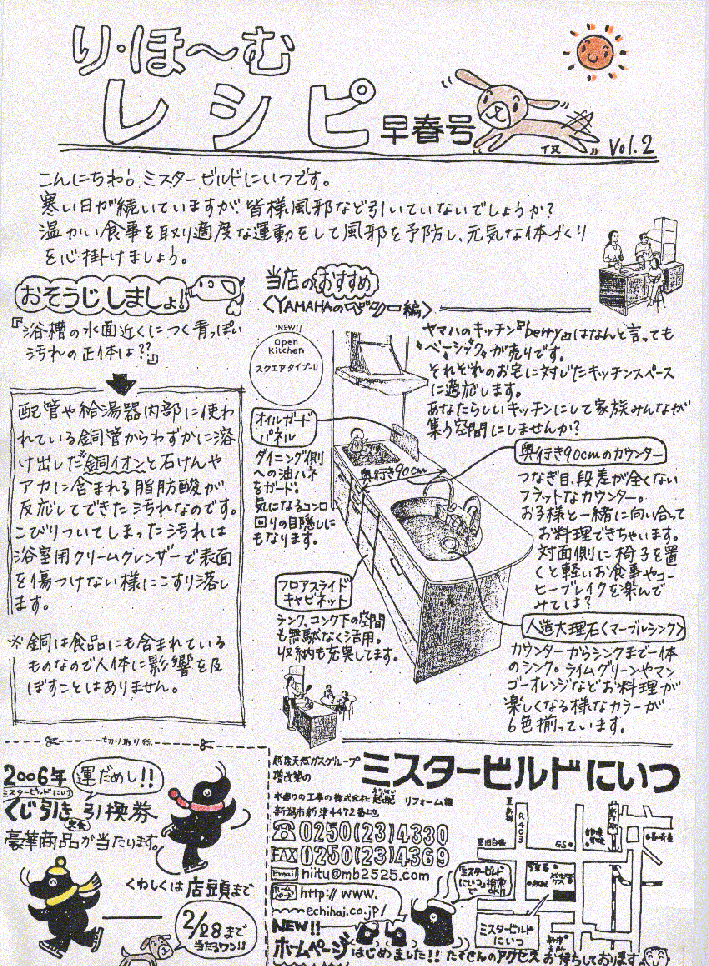 り・ほ～む
レシピ 早春号
"イヌ" Vol.2
こんにちわ。ミスタービルドにいつです。
寒い日が続いていますが、皆様風邪など引いていないでしょうか?
温かい食事を取り適度な運動をして風邪を予防し、元気な体づくり
を心掛けましょう。
おそうじしましょ!
『浴槽の水面近くにつく青っぽい
汚れの正体は??』
配管や給湯器内部に使わ
れている銅管からわずかに溶
け出した※銅イオンと石けんや
アカに含まれる脂肪酸が
反応してできた汚れなのです。
こびりついてしまった汚れは
浴室用クリームクレンザーで表面
を傷つけない様にこすり落し
ます。
※銅は食品にも含まれている
ものなので人体に影響を及
ぼすことはありません。
当店のおすすめ
NEW!
open
kitchen
スクエアタイプL型
ヤマハのキッチン『berry』はなんと言っても
"ベーシック"が売りです。
それぞれのお宅に対したキッチンスペース
に適応します。
あなたらしいキッチンにして家族みんなが
集う空間にしませんか?
オイルガード
パネル
ダイニング側
への油ハネ
をガード!
気になるコンロ
回りの目隠しに
もなります。
奥行き90cm
奥行き90cmのカウンター
つなぎ目、段差が全くない
フラットなカウンター。
お子様と一緒に向い合って
お料理できちゃいます。
対面側に椅子を置
くと軽いお食事やコー
ヒーブレイクを楽んで
みては?
フロアスライド
キャビネット
シンク、コンロ下の空間
も無駄なく活用。
収納も充実してます。
人造大理石<マーブルシンク>
カウンターからシンクまで一体
のシンク。ライムグリーンやマン
ゴーオレンジなどお料理が
楽しくなる様なカラーが
6色揃っています。
切り取り線
2006年 運だめし!!
ミスタービルドにいつ
くじ引き引換券
豪華商品が当たります。
くわしくは店頭まで
2/28まで
当たるワン!!
越後天然ガスグループ
ミスタービルドにいつ
リフォーム館
☎0250(23)4330
FAX 0250(23)4369
niitu@mb2525.com
http://www.
echihai.co.jp/
R403
GS
ミスタービルド
にいつ
NEW!!
ホームページはじめました!! たくさんのアクセスお待ちしております